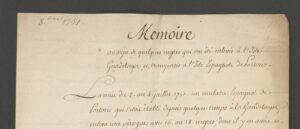 8.bre 1751
Memoire
au sujet de quelques negres qui ont été enlevés à l'Isle
Guadeloupe, et transportés à l'Isle Espagnole de Portoric
L'année du 2. au 4 juillet, 1751. un mulatre Espagnol de
Portoric qui s'étoit établi depuis quelque temps à la Guadeloupe,
enleva une pirogue avec 16 ou 18 negres, dont il y en avoit